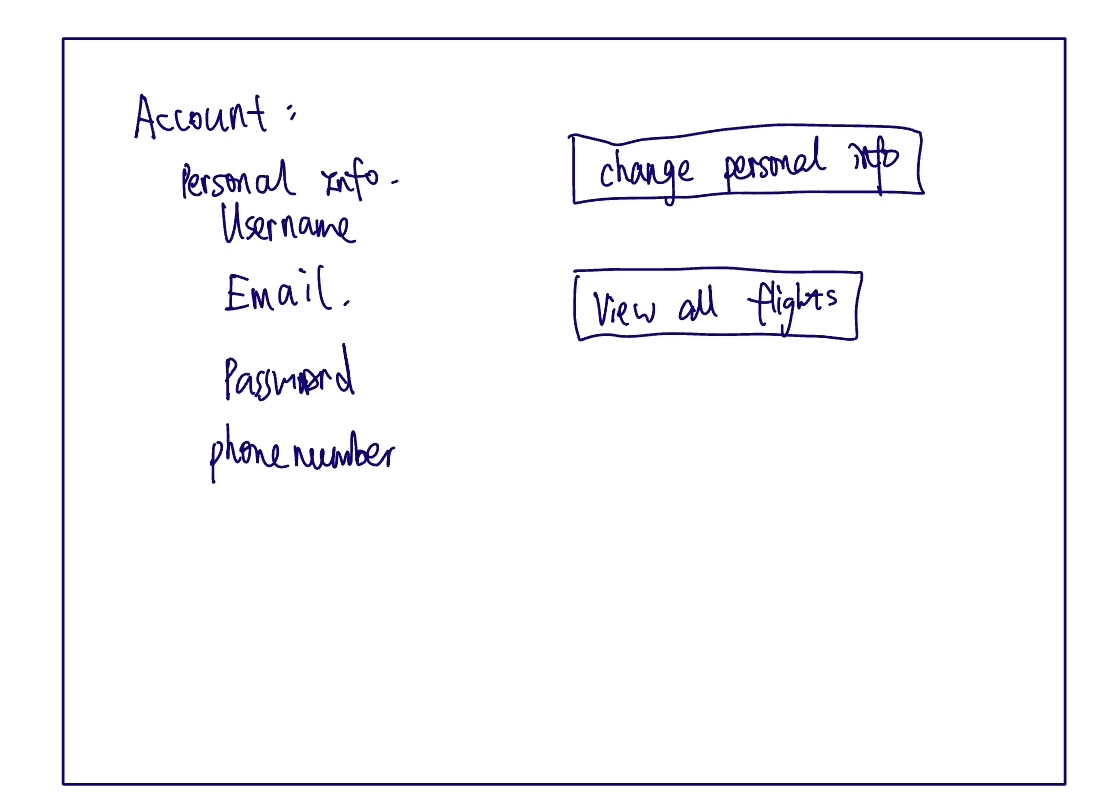 Account :
Personal Info.
Username
Email.
Password
phone number
change personal info
View all flights